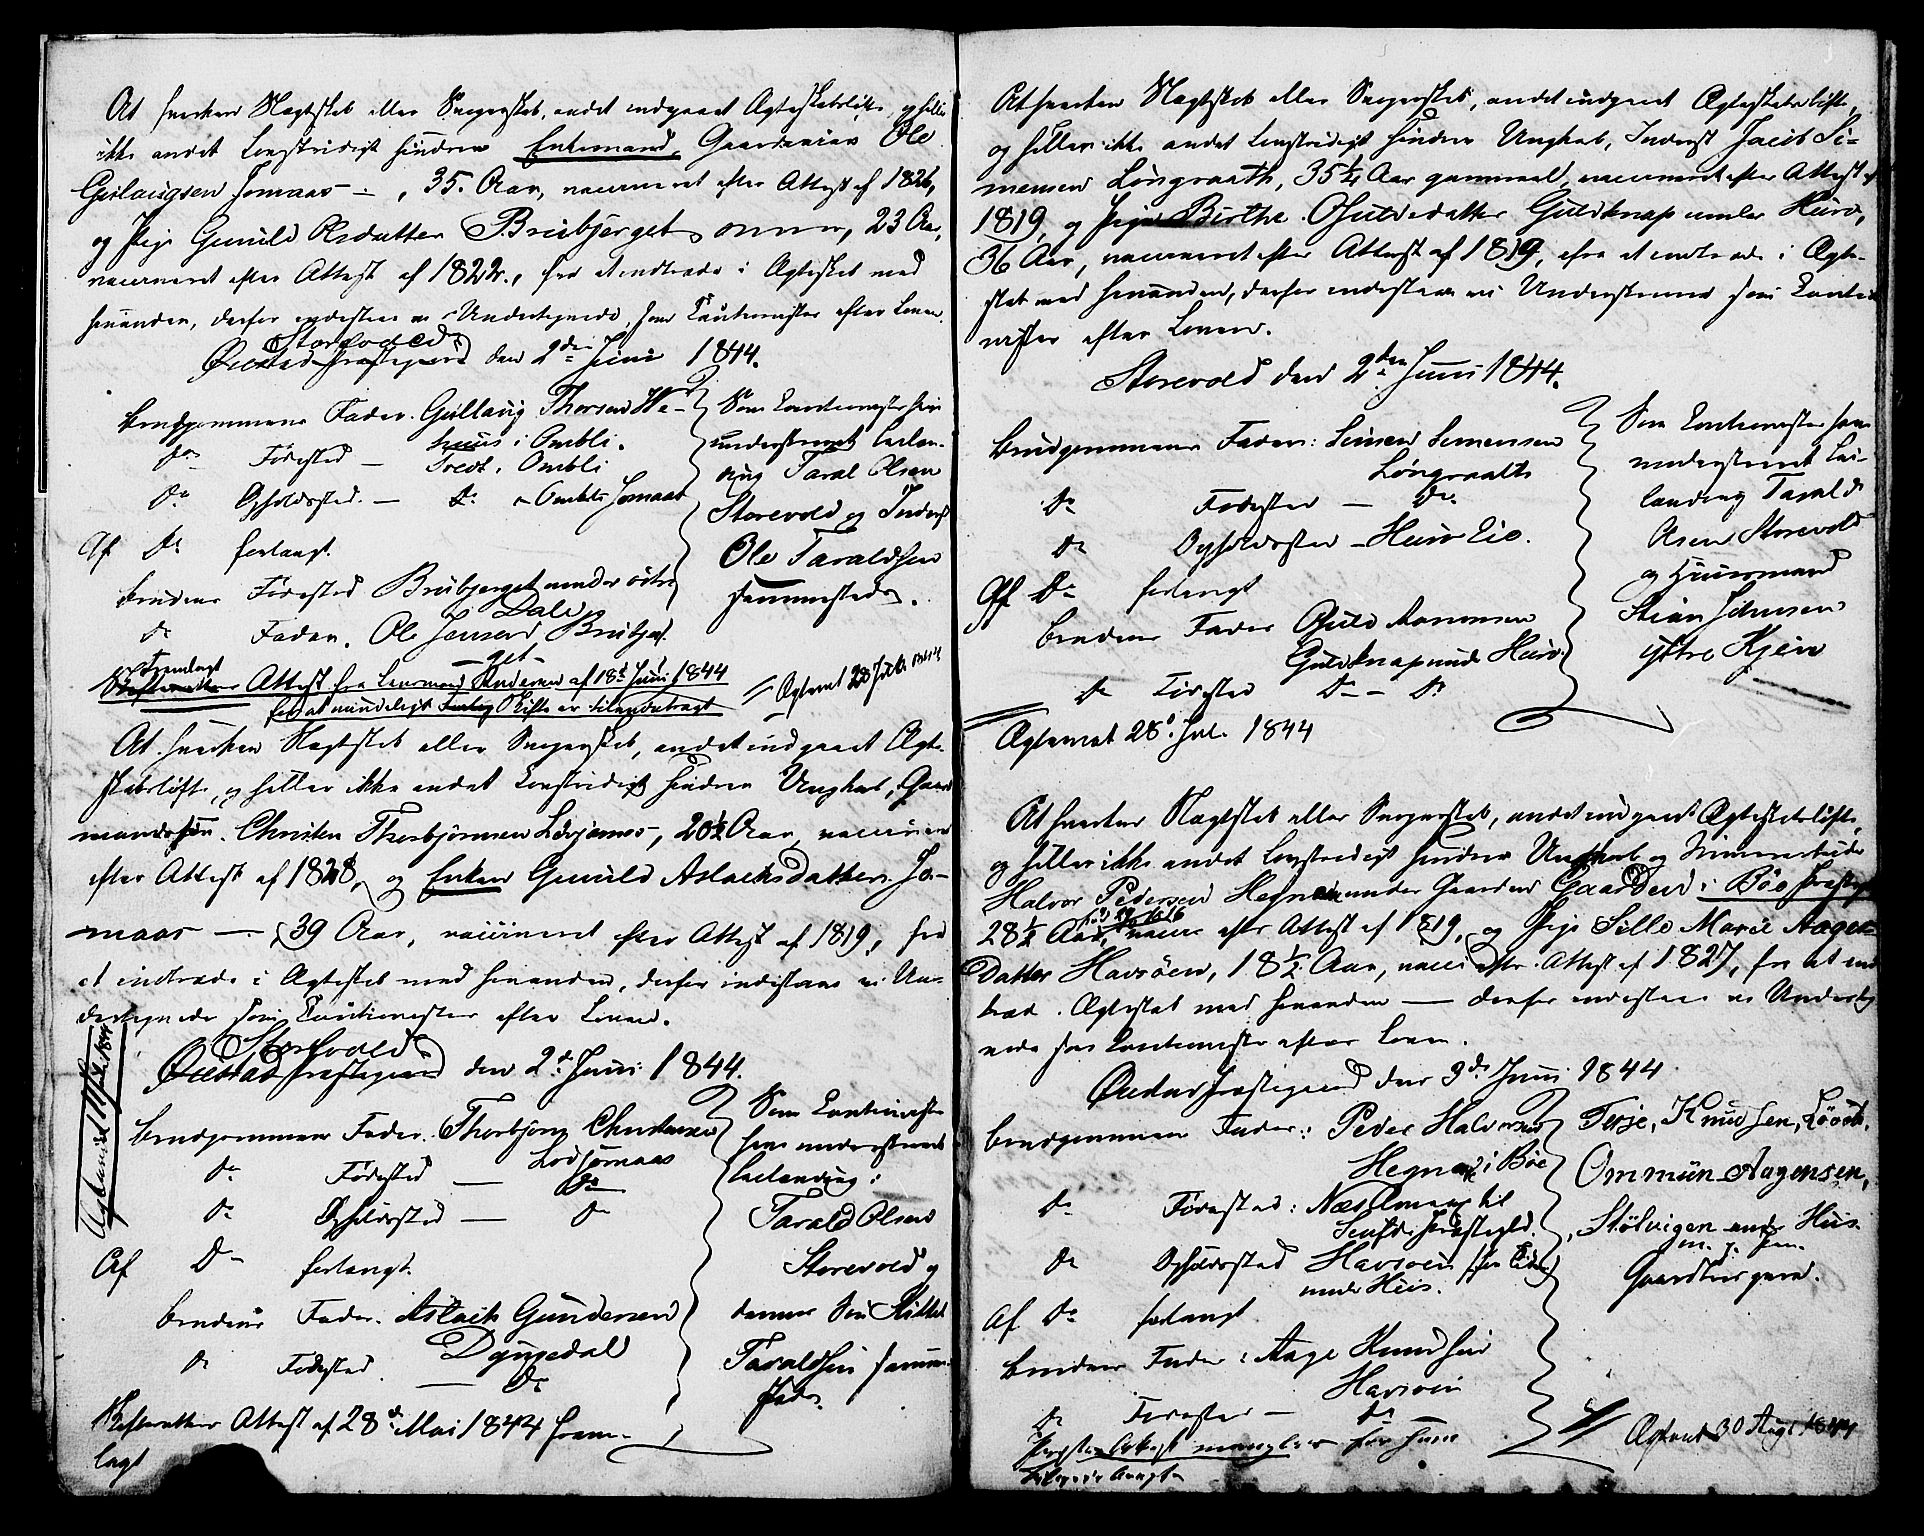 At hverken Slægtskab eller Svogerskab, andet indgaaet Ægteskabsløfte, og heller
ikke andet Lovstridigt hindrer Enkemand, Gaardmand Ole
Gullaugsen Jomaas — , 35. Aar, vaccineret efter Attest af 1826,
og Pige Gunild Olsdatter Brubjerget, 23 Aar,
vaccineret efter Attest af 1822., fra at indtræde i Ægteskab med
hinanden, derfor indestaae vi Undertegnede som Cautionister efter Loven.
Storevold
Øiestad Præstegaard den 2den Juni 1844.
Brudgommens Fader. Gullaug Thorsen
i Ombli.
Do Fødested — Tvedt i Ombli
Do Opholdssted. — Jomaas
Af Do forlangt.
Brudens Fødested Brubjerget under østre
Dale
Do Fader. Ole Jensen Brubjer-
get
Som Cautionister have
underskrevet Tarald Olsen
Storevold og Inderst
Ole Taraldsen
sammesteds.
Fremlagt
Attest fra Lensmand Andersen af 18de Juni 1844
for at mindeligt Skifte er tilendebragt
Ægteviet 28 Juli 1844
At hverken Slægtskab eller Svogerskab, andet indgaaet Ægte-
skabsløfte, og heller ikke andet Lovstridigt hindrer Ungkarl, Gaard
mandssøn. Christen Thorbjørnsen Lødjomaas, 20½ Aar, vaccineret
efter Attest af 1828, og Enken Gunuld Aslachsdatter Jo-
maas — , 39 Aar, vaccineret efter Attest af 1819, fra
at indtræde i Ægteskab med hinanden, derfor indestaae vi Un-
dertegnede som Cautionister efter Loven.
Storevold
Øiestad Præstegaard den 2d Juni 1844.
Brudgommens Fader. Thorbjørn Christensen
Lødjomaas
Do Fødested — Do
Do Opholdssted — Do
Af Do forlangt.
Brudens Fader. Aslach Gundersen
Dyngedal
Do Fødested. — Do
Som Cautionister
have underskrevet
Tarald Olsen
Storevold og
dennes Søn
Taraldsen sammen-
steds
Skifteretten Attest af 28de Mai 1844 frem-
lagt
At hverken Slægtskab eller Svogerskab, andet indgaaet Ægteskabsløfte,
og heller ikke andet Lovstridigt hindrer Ungkarl, Inderst Jacob Si-
mensen Longraath, 35¼ Aar gammel, vaccineret efter Attest af
1819, og Pige Birthe Guldsdatter Guldknap under Huso,
36 Aar, vaccineret efter Attest af 1819, fra at indtræde i Ægte-
skab med hinanden, derfor indestaae vi Underskrevne som Cautio
nister efter Loven.
Storevold den 2den Juni 1844.
Brudgommens Fader: Simen Simensen
Longraath
Do Fødested — Do
Do Opholdssted —
Af Do forlangt
Brudens Fader Guld Aanonsen
Guldknap under Huso
Do Fødested Do — Do
Som Cautionister have
underskrevet
Tarald
Olsen Storevold
og Huusmand
Stian Jensen
ystre Kjein
Ægteviet 28de Jul. 1844
At hverken Slægtskab eller Svogerskab, andet indgaaet Ægteskabsløfte,
og heller ikke andet Lovstridigt hindrer Ungkarl og Tømmermand
Halvor Pedersen Hegna under Gaarden Gaarden i Bøe Præstegj
28½ Aar, vacc. efter Attest af 1819, og Pige Sille Marie Aages
Datter Havsøen, 18½ Aar, vacci efter Attest af 1827, fra at ind
træde i Ægteskab med hinanden — derfor indestaae vi Underteg
nede som Cautionister efter Loven.
Øiestad Præstegaard den 3de Juni 1844
Brudgommens Fader: Peder Halvorsen
Hegna i Bøe
Do Fødested:
Do Opholdssted Havsøen
under Huus.
Af Do forlangt
Brudens Fader: Aage Knudsen
Havsøen
Do Fødested — Do
Terje, Knudsen,
Ommün Aagensen,
Stölvigen under Huus
m. f. Pen.
Præste Attest mangler for ham
Ægteviet 30 Aug 1844